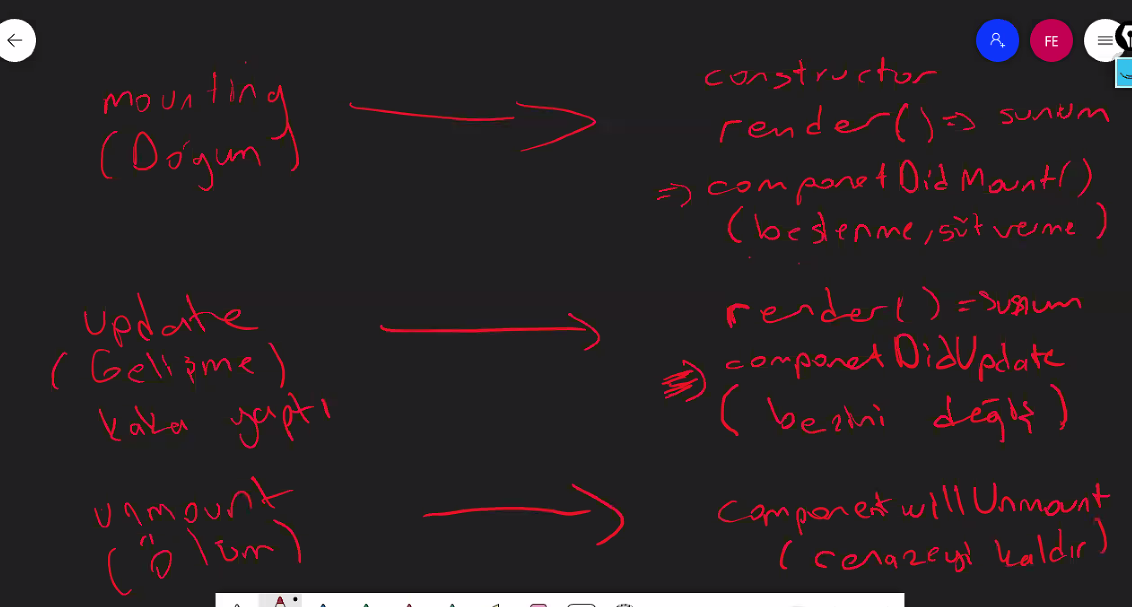 FE
mounting
(Doğum)
constructor
render() => sunum
=> componetDidMount()
(beslenme, süt verme)
update
(Gelişme)
kaka yaptı
render() = sunum
componetDidUpdate
(bezini değiş)
unmount
(Ölüm)
componentwillUnmount
(cenazeyi kaldır)